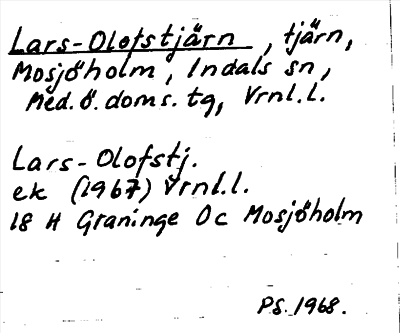 Lars-Olofstjärn, tjärn,
Mosjöholm, Indals sn,
Med.ö.doms.tg, Vrnl.l.
Lars-Olofstj.
ek (1967) Vrnl.l.
18 H Graninge 0c Mosjöholm
PS. 1968.